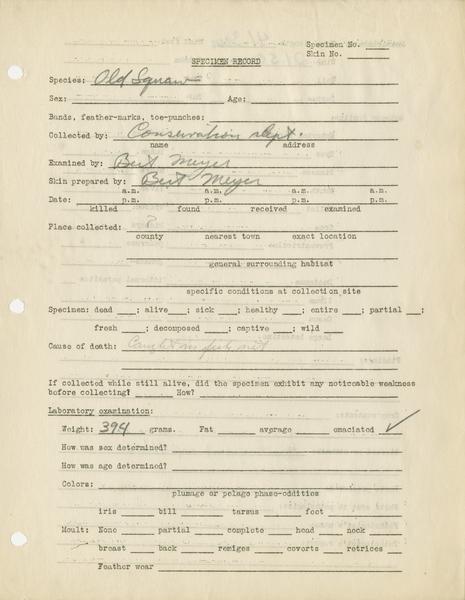 Specimen No. ____
Skin No. ____
SPECIMEN RECORD
Species: Old Squaw
Sex: ____ Age: ____
Bands, feather-marks, toe-punches: ____
Collected by: Conservation Dept.
name address
Examined by: Bert Meyer
Skin prepared by: Bert Meyer
a.m. a.m. a.m. a.m.
Date: ____ p.m. ____ p.m. ____ p.m. ____ p.m.
killed found received examined
Place collected: ?
county nearest town exact location
general surrounding habitat
specific conditions at collection site
Specimen: dead ___; alive ___; sick ___; healthy ___; entire ___; partial ___;
fresh ___; decomposed ___; captive ___; wild ___
Cause of death: Caught in fish net
If collected while still alive, did the specimen exhibit any noticeable weakness
before collecting? ____ How? ____
Laboratory examination:
Weight: 394 grams. Fat ____ average ____ emaciated ✓
How was sex determined? ____
How was age determined? ____
Colors: ____
plumage or pelage phase-oddities
iris ____ bill ____ tarsus ____ foot ____
Moult: None ____ partial ____ complete ____ head ____ neck ____
breast ____ back ____ remiges ____ coverts ____ retrices ____
Feather wear ____